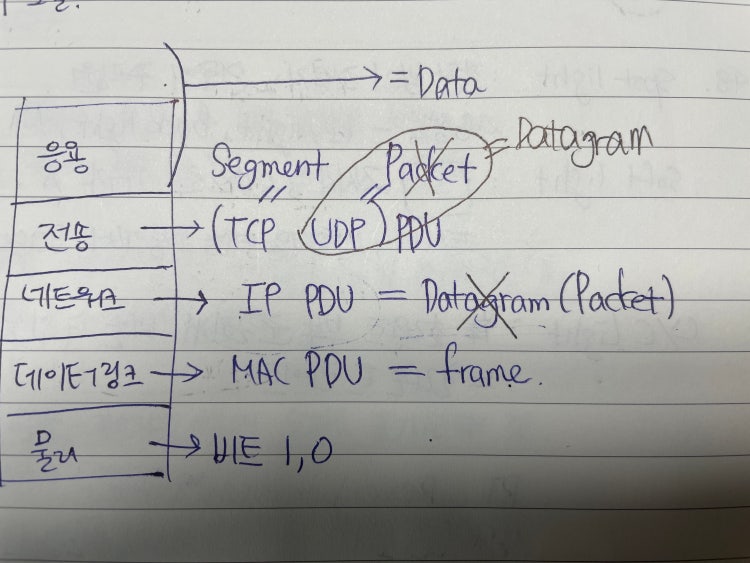 = Data
응용
Segment Packet = Datagram
전송 → (TCP UDP) PDU
네트워크 → IP PDU = Datagram (Packet)
데이터링크 → MAC PDU = frame.
물리 → 비트 1, 0